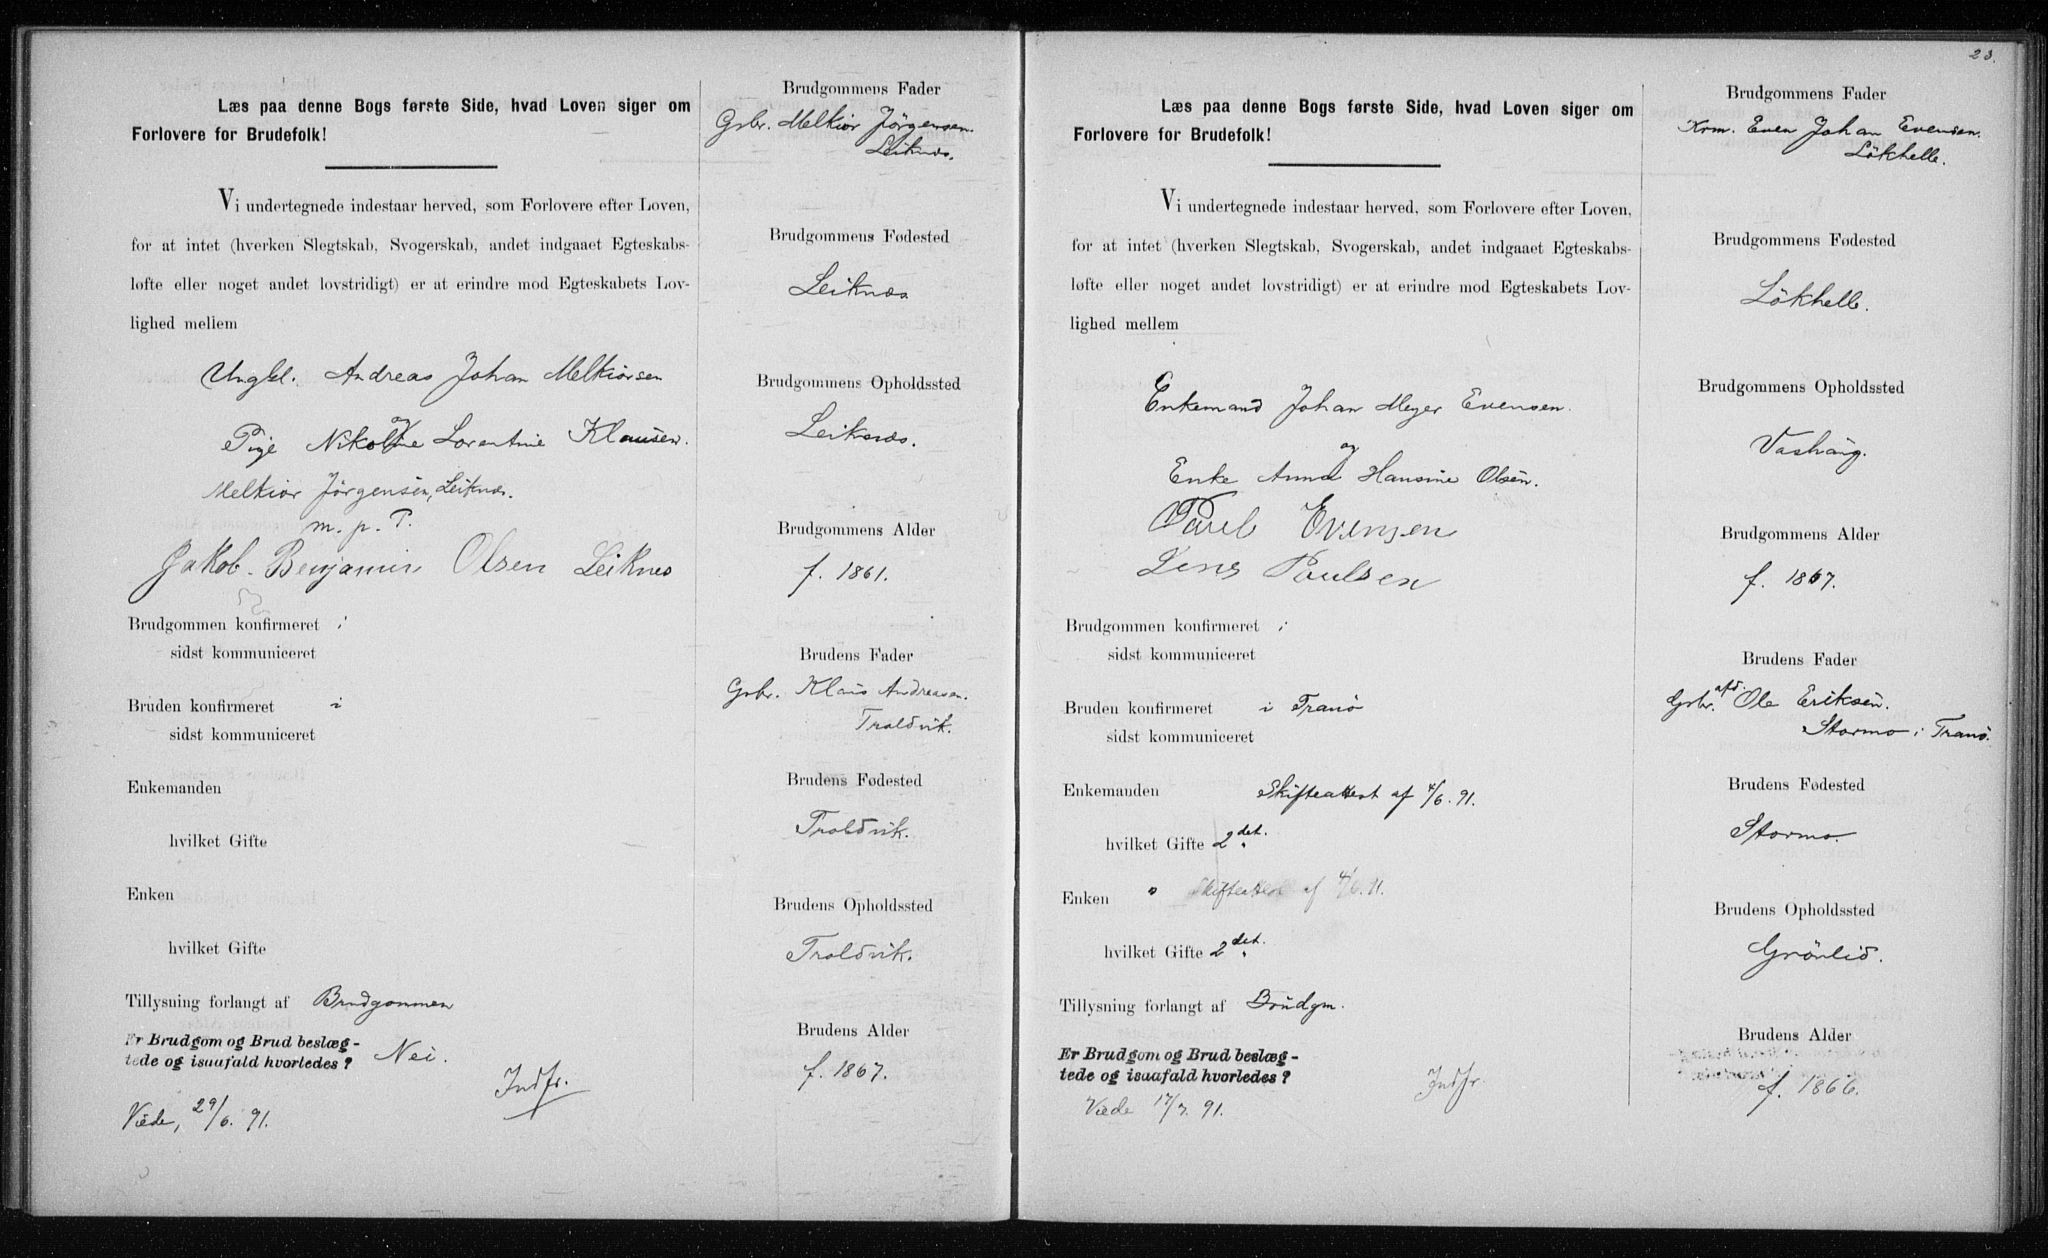 Læs paa denne Bogs første Side, hvad Loven siger om
Forlovere for Brudefolk!
Vi undertegnede indestaar herved, som Forlovere efter Loven,
for at intet (hverken Slegtskab, Svogerskab, andet indgaaet Egteskabs-
løfte eller noget andet lovstridigt) er at erindre mod Egteskabets Lov-
lighed mellem
Ungkl. Andreas Johan Melkiorsen
og
Pige Nikoline Lorentine Klausen.
Melkior Jörgensen, Leiknes.
m. p. P.
Jakob Benjamin Olsen Leiknes
Brudgommen konfirmeret i
sidst kommuniceret
Bruden konfirmeret i
sidst kommuniceret
Enkemanden
hvilket Gifte
Enken
hvilket Gifte
Tillysning forlangt af Brudgommen
Er Brudgom og Brud beslæg-
tede og isaafald hvorledes? Nei.
Indfr.
Viede, 29/6. 91.
Brudgommens Fader
Gbr. Melkior Jörgensen.
Leiknes.
Brudgommens Fødested
Leiknes
Brudgommens Opholdssted
Leiknes.
Brudgommens Alder
f. 1861.
Brudens Fader
Gbr. Klaus Andreasen.
Troldvik.
Brudens Fødested
Troldvik.
Brudens Opholdssted
Troldvik.
Brudens Alder
f. 1867.
23.
Læs paa denne Bogs første Side, hvad Loven siger om
Forlovere for Brudefolk!
Vi undertegnede indestaar herved, som Forlovere efter Loven,
for at intet (hverken Slegtskab, Svogerskab, andet indgaaet Egteskabs-
løfte eller noget andet lovstridigt) er at erindre mod Egteskabets Lov-
lighed mellem
Enkemand Johan Meyer Evensen.
og
Enke Anna Hansine Olsen.
Parel Evensen
Jens Paulsen
Brudgommen konfirmeret i
sidst kommuniceret
Bruden konfirmeret i Tranö
sidst kommuniceret
Enkemanden Skifteattest af 4/6. 91.
hvilket Gifte 2det.
Enken " Skifteattest af 4/6. 91.
hvilket Gifte 2det.
Tillysning forlangt af Brudgm.
Er Brudgom og Brud beslæg-
tede og isaafald hvorledes?
Indfr.
Viede 17/7. 91.
Brudgommens Fader
Krm. Even Johan Evensen.
Lökhelle.
Brudgommens Fødested
Lökhelle.
Brudgommens Opholdssted
Vashaug.
Brudgommens Alder
f. 1867.
Brudens Fader
Gbr. afd. Ole Eriksen.
Stormo i Tranö.
Brudens Fødested
Stormo.
Brudens Opholdssted
Grönlid.
Brudens Alder
f. 1866.